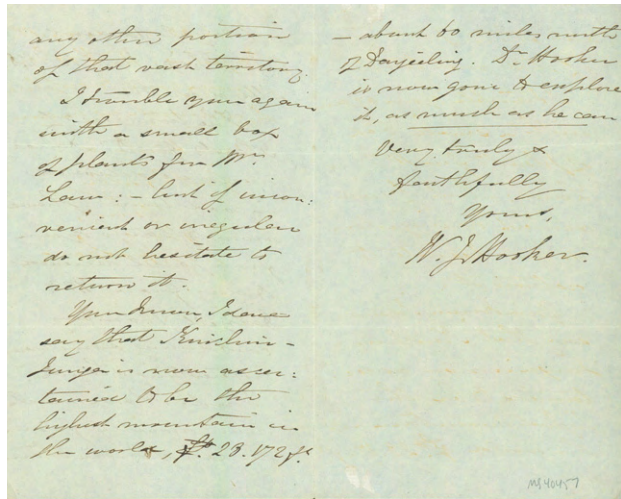 any other portion
of that vast territory.
I trouble you again
with a small box
of plants for Mr.
Law: – but if incon:
venient or irregular
do not hesitate to
return it.
You know, I dare
say that Kinchin-
Junga is now ascer:
tained to be the
highest mountain in
the world, 28.172 ft.
– about 60 miles north
of Darjeeling. Dr. Hooker
is now gone to explore
it, as much as he can
Very truly &
faithfully
Yours,
W. J. Hooker.
MS 40457